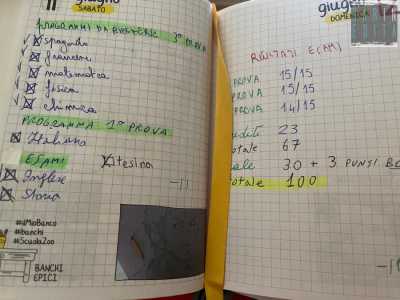 11 giugno
SABATO
PROGRAMMI DA RIPETERE 3° PROVA
spagnolo
francese
matematica
fisica
chimica
PROGRAMMA 1° PROVA
Italiano
ESAMI
tesina
Inglese
Storia
-11
#dMioBanco
#banchi
#ScuolaZoo
BANCHI
EPICI
giugno 12
DOMENICA
RISULTATI ESAMI
PROVA 15/15
PROVA 15/15
PROVA 14/15
crediti 23
totale 67
orale 30 + 3 PUNTI BO
totale 100